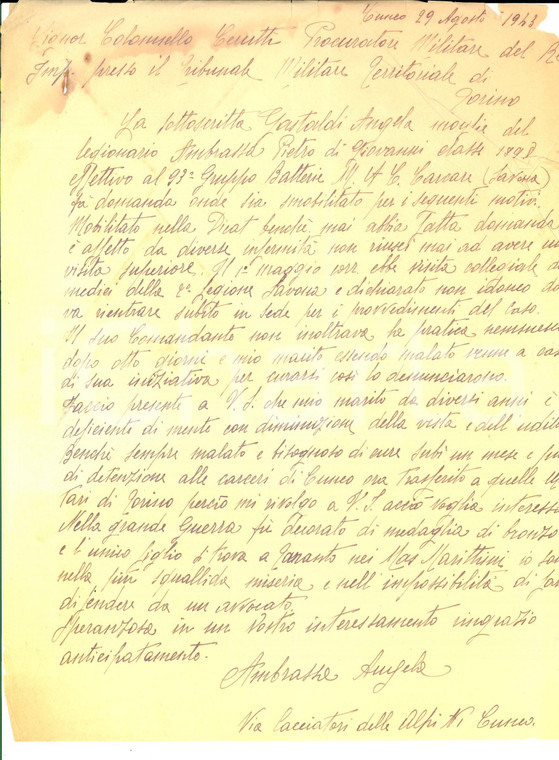 Cuneo 29 Agosto 1943
Signor Colonnello Cerutti Procuratore Militare del Re
Imp. presso il Tribunale Militare Territoriale di
Torino
La sottoscritta Gastaldi Angela moglie del
legionario Ambrassa Pietro di Giovanni classe 1898
effettivo al 93° Gruppo Batterie M. A. C. Carcare (Savona)
fa domanda onde sia smobilitato per i seguenti motivi.
Mobilitato nella Dicat benchè mai abbia fatta domanda
è affetto da diverse infermità non riuscì mai ad avere una
visita superiore. Il 1° maggio corr. ebbe visita collegiale da
medici della 2a legione Savona e dichiarato non idoneo do
va rientrare subito in sede per i provvedimenti del caso.
Il suo Comandante non inoltrava la pratica nemmeno
dopo otto giorni e mio marito essendo malato venne a casa
di sua iniziativa per curarsi così lo denunciarono.
Faccio presente a V. S. che mio marito da diversi anni è
deficiente di mente con diminuzione della vista e dell'udito
Benchè sempre malato e bisognoso di cure subì un mese e più
di detenzione alle carceri di Cuneo ora trasferito a quelle
tari di Torino perciò mi rivolgo a V. S. acciò voglia interess
Nella grande Guerra fu decorato di medaglia di bronzo
e l'unico figlio si trova a Taranto nei Mas Marittimi io so
nella più squallida miseria e nell'impossibilità di
difendere da un avvocato.
Speranzosa in un Vostro interessamento ringrazio
anticipatamente.
Ambrassa Angela
Via Cacciatori delle Alpi N 1 Cuneo.